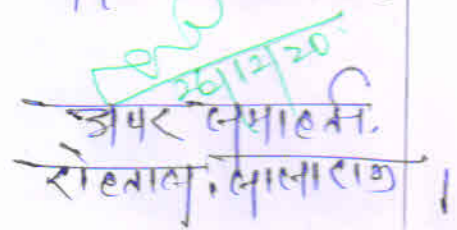 26/12/20
अपर समाहर्ता.
रोहतास, सासाराम ।